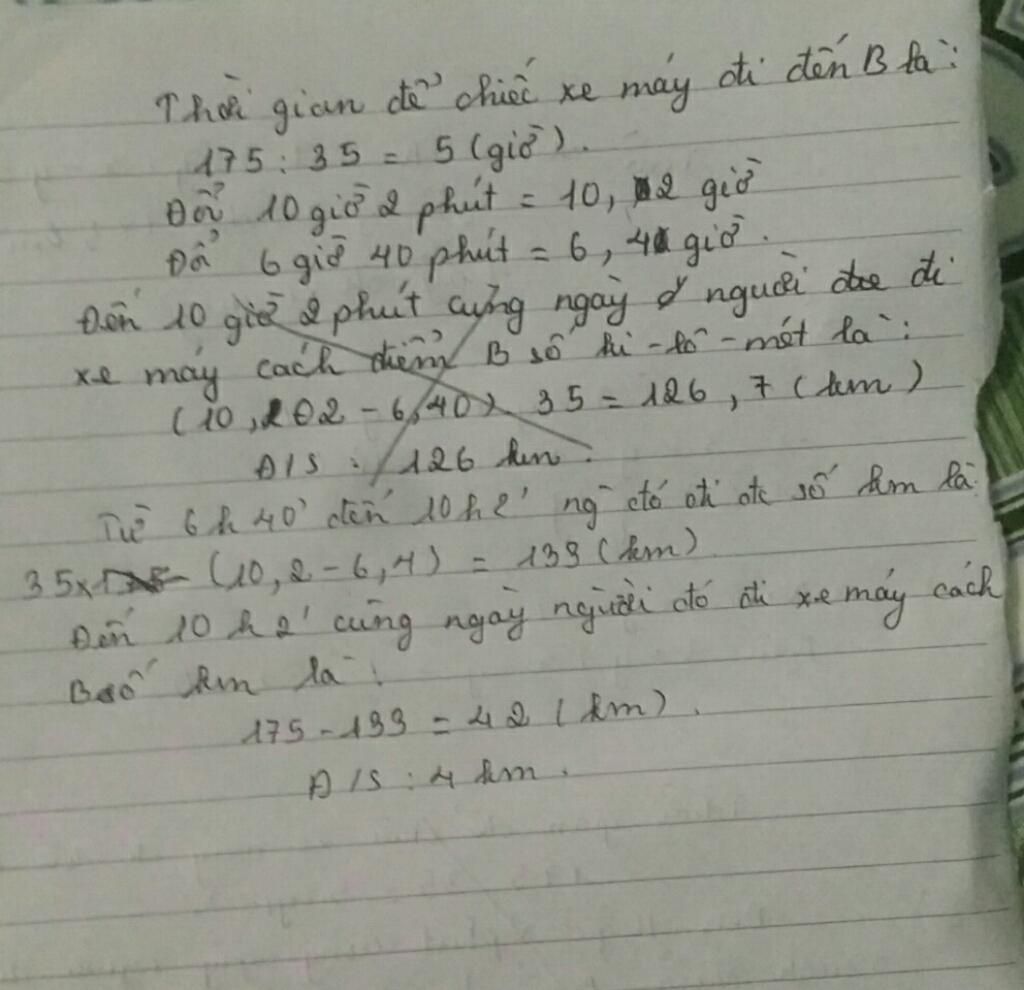 Thời gian để chiếc xe máy đi đến B là:
175 : 35 = 5 (giờ).
Đổi 10 giờ 2 phút = 10, 2 giờ
Đổ 6 giờ 40 phút = 6, 4 giờ.
Đến 10 giờ 2 phút cùng ngày người đi
xe máy cách điểm B số ki-lô-mét là:
(10, 02 - 6,40) 35 = 126,7 (km)
Đ/S : 126 km.
Từ 6h 40' đến 10h2' ng đó đi số km là:
35 x (10,2 - 6,4) = 133 (km)
Đến 10 h 2' cùng ngày người đó đi xe máy cách
B số km là:
175 - 133 = 42 (km).
Đ/S : 4 km.